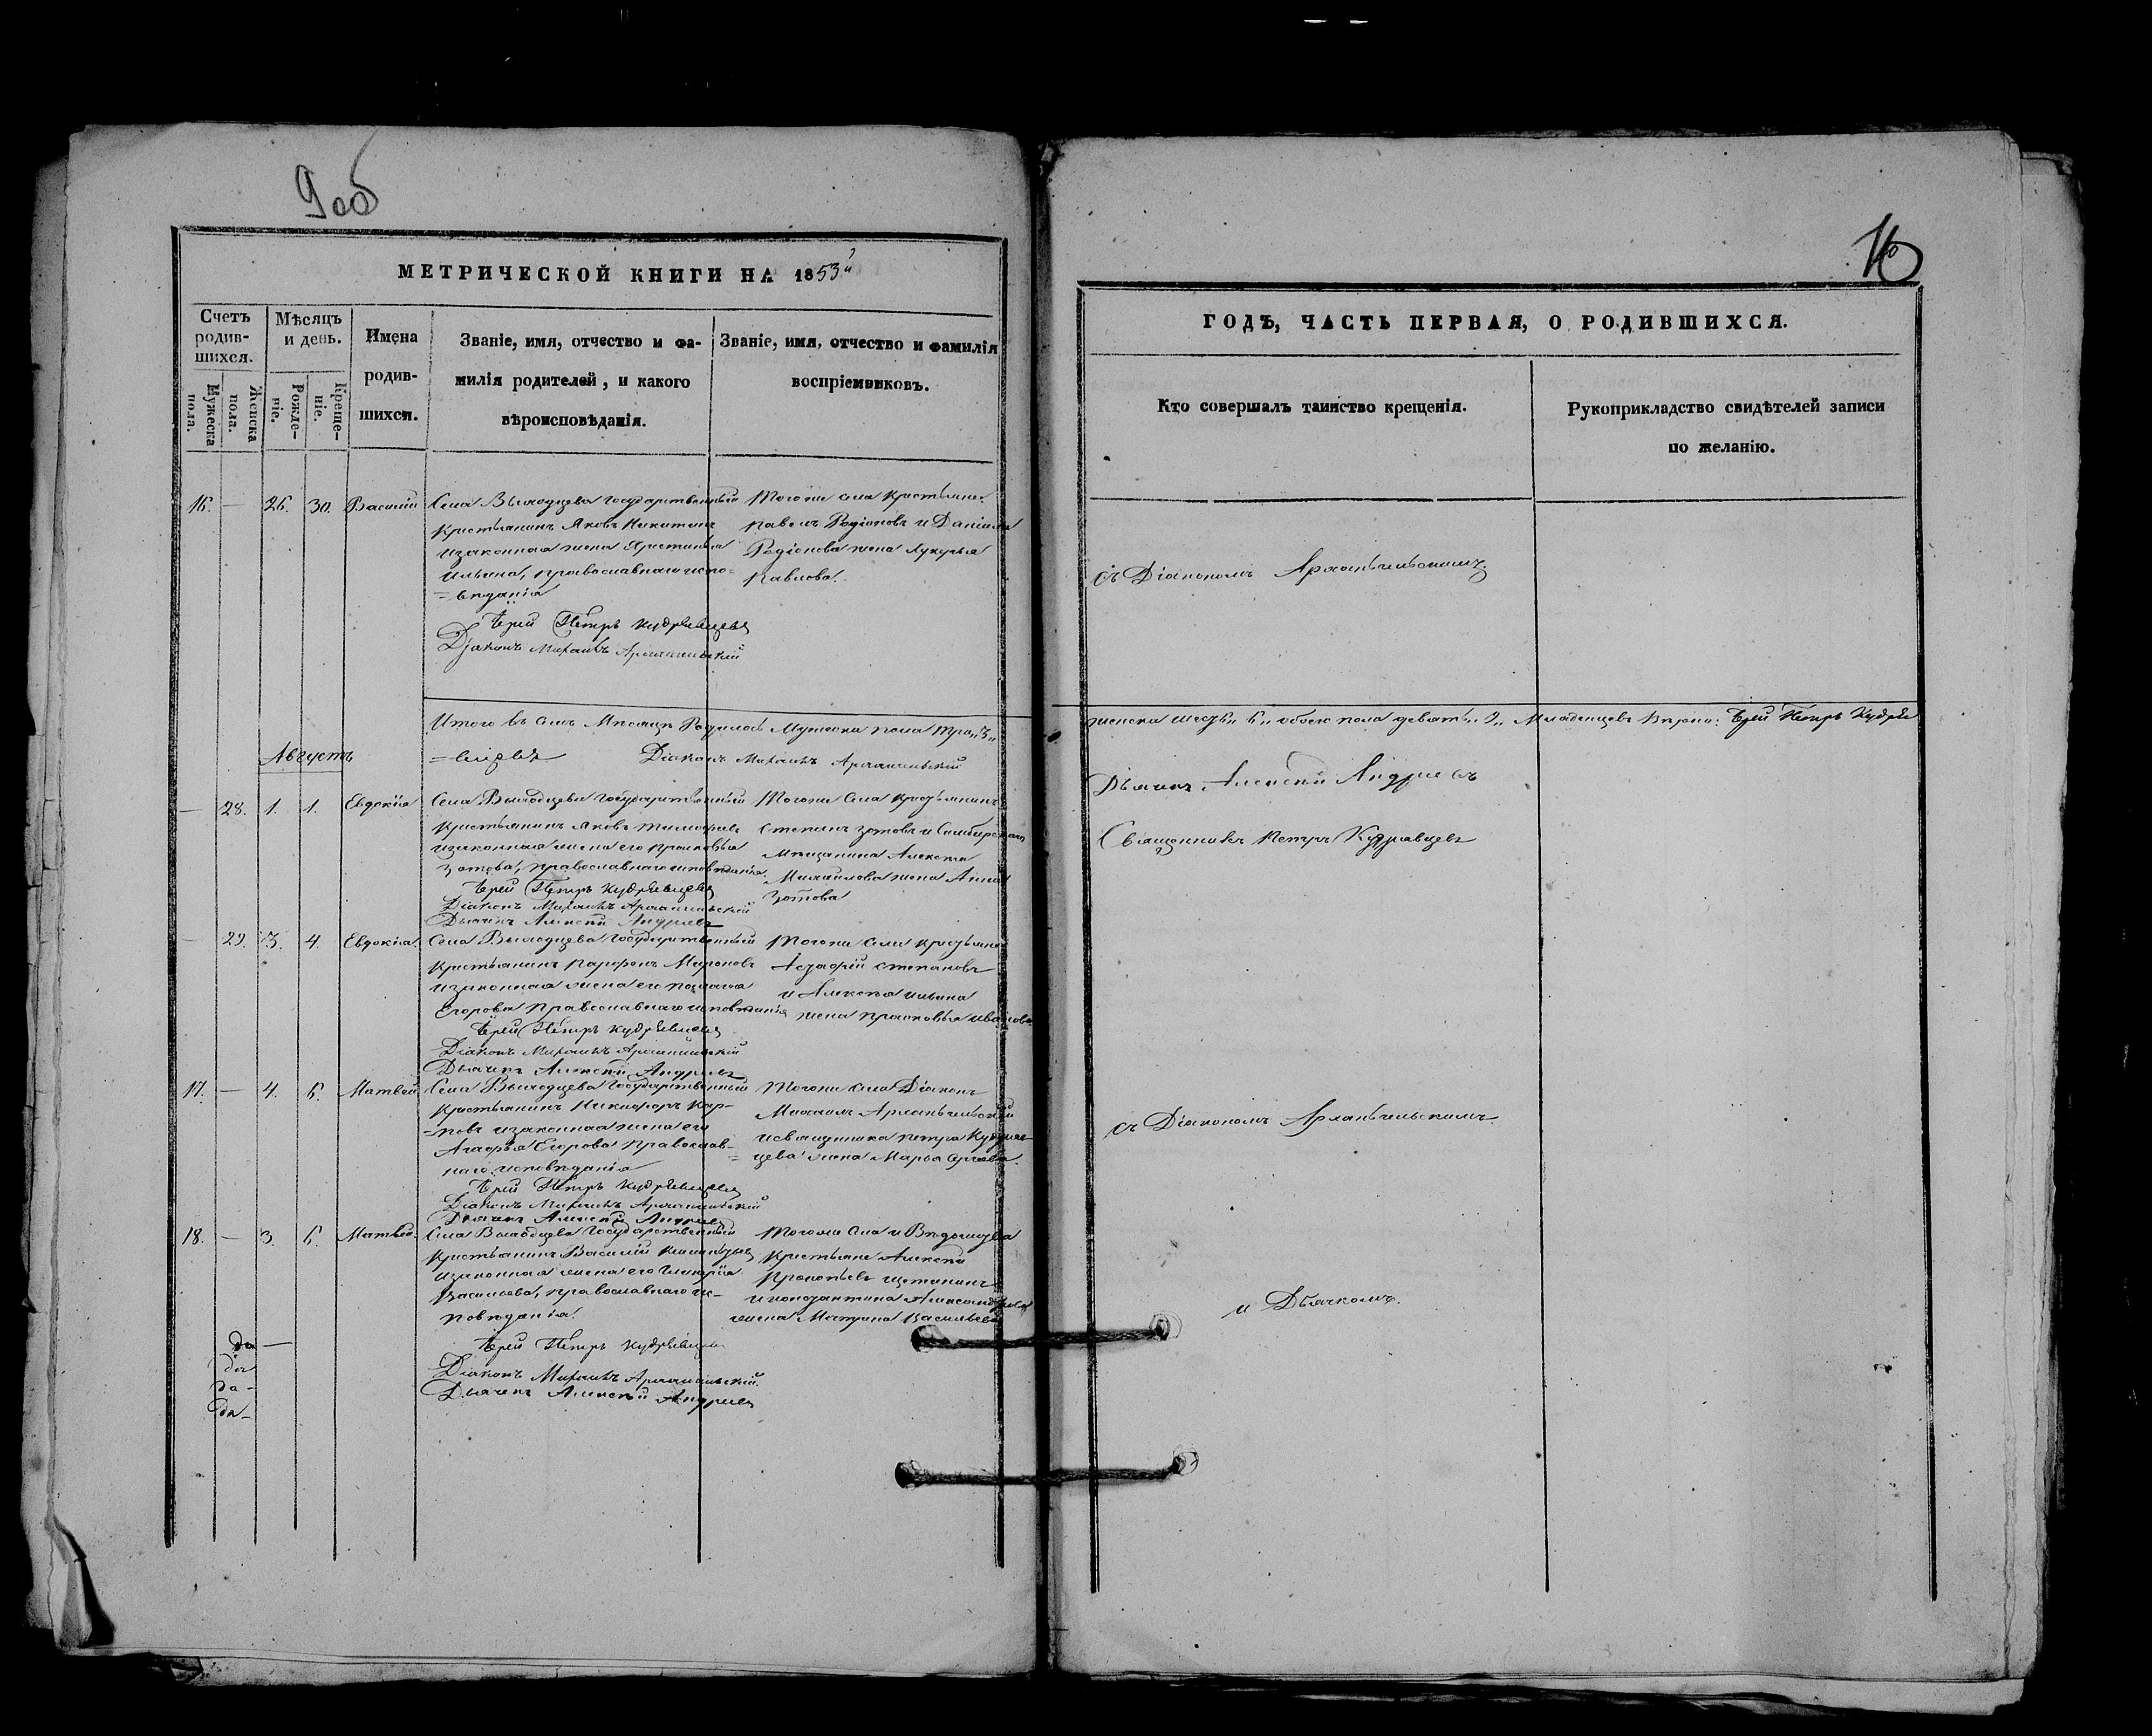 9 об
МЕТРИЧЕСКОЙ КНИГИ НА 1853й
Счетъ родив-шихся.
Мужеска пола.
Женска пола.
Мѣсяцъ и день.
Рожде-ніе.
Креще-ніе.
Имена родив-шихся.
Званіе, имя, отчество и фа-
милія родителей, и какого
вѣроисповѣданія.
Званіе, имя, отчество и фамилія
воспріемниковъ.
16. — 26. 30. Василій
Села Выходцева Государственный
крестьянинъ Яковъ Никитинъ
изаконная жена Христинья
Ильина, православнаго испо=
=вѣданія
Іерей Петръ Кудрявцевъ
Діаконъ Михаилъ Архангельскій
Тогоже села крестьяне
Павелъ Родіоновъ и Даніила
Родіонова жена Лукерья
Павлова.
Итого въ семъ Мѣсяцѣ Родилось Мужеска пола три „3„
=вцевъ Діаконъ Михаилъ Архангельскій
Августъ
— 28. 1. 1. Евдокія
Села Выходцева Государственный
крестьянинъ Яковъ Тимофеевъ
изаконная жена его Прасковья
Зотова, православнаго исповѣданія.
Іерей Петръ Кудрявцевъ
Діаконъ Михаилъ Архангельскій
Дьячекъ Алексѣй Андреевъ
Тогоже Села крестьянинъ
Степанъ Зотовъ и Симбирскаго
Мѣщанина Алексѣя
Михайлова жена Анна
Зотова
— 29. 3. 4. Евдокія.
Села Выходцева Государственный
крестьянинъ Парфенъ Мироновъ
изаконная жена его Пелагея
Егорова Православнаго исповѣданія
Іерей Петръ Кудрявцевъ
Діаконъ Михаилъ Архангельскій
Дьячекъ Алексѣй Андреевъ
Тогоже Села крестьяне
Степановъ
и Алексѣя Ильина
жена Прасковья Иванова
17. — 4. 6. Матвей
Села Выходцева Государственный
крестьянинъ Никифоръ Кар-
=повъ изаконная жена его
Агафья Егорова Православ-
наго исповѣданія
Іерей Петръ Кудрявцевъ
Діаконъ Михаилъ Архангельскій
Дьячекъ Алексѣй Андреевъ
Тогоже села Діаконъ
Михаилъ Архангельскій
и священника Петра Кудряв=
=цева жена Марья
18. — 3. 6. Матвей.
Села Выходцева Государственный
крестьянинъ Василій
изаконная жена его Гликерія
Васильева, православнаго ис-
повѣданія.
Іерей Петръ Кудрявцевъ
Діаконъ Михаилъ Архангельскій.
Дьячекъ Алексѣй Андреевъ
Тогоже села и
крестьяне Алексѣй
Прокопьевъ
жена Матрена Васильева
да —
да
да —
да —
10
ГОДЪ, ЧАСТЬ ПЕРВАЯ, О РОДИВШИХСЯ.
Кто совершалъ таинство крещенія.
Рукоприкладство свидѣтелей записи
по желанію.
съ Діакономъ Архангельскимъ.
женска шесть „6„ обоек пола девять „9„ Младенцевъ Вѣрно: Іерей Петръ Кудря
Дьячекъ Алексѣй Андреевъ
Священникъ Петръ Кудрявцевъ
съ Діакономъ Архангельскимъ.
и Дьячкомъ.